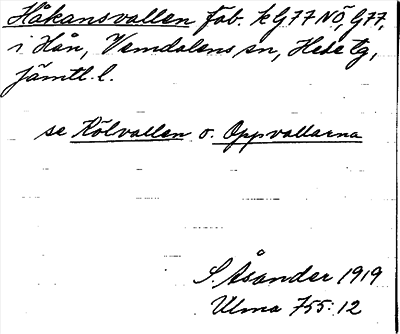 Håkansvallen fäb. kG77NÖ, G77,
i Hån, Vemdalens sn, Hede tg,
Jämtl. l.
se Kölvallen o. Oppvallarna
S. Åsander 1919
Ulma 755:12